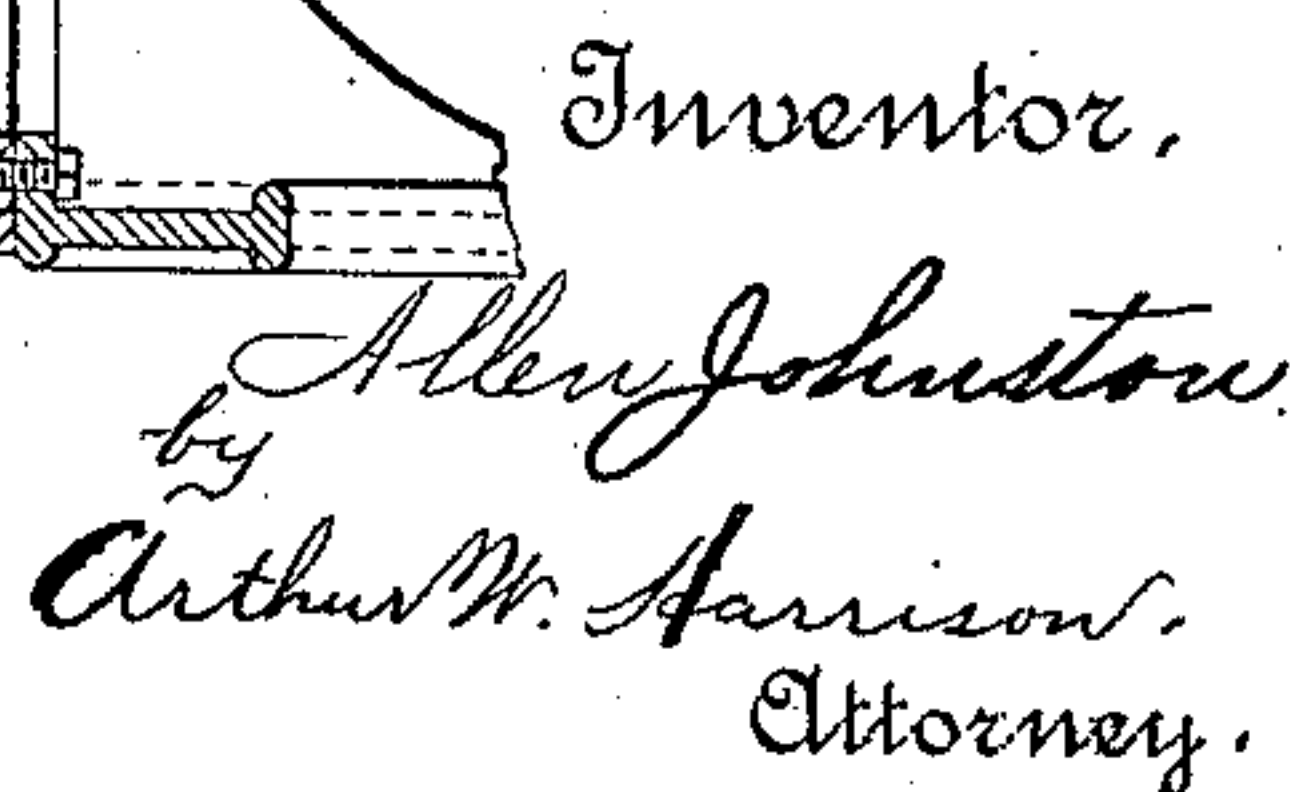 Inventor.
Allen Johnston
by
Arthur W. Harrison.
Attorney.